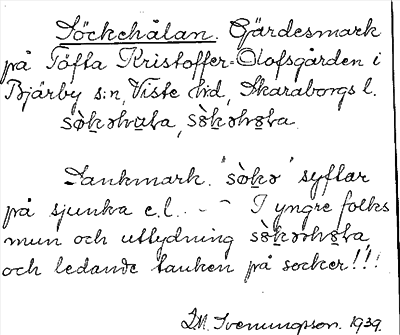 Söckehålan. Gärdesmark
på Töfta Kristoffer-Olofsgården i
Bjärby s:n, Viste hd, Skaraborgs l.
Sankmark. "
" syftar
på sjunka e.l. - ~ I yngre folks
mun och uttydning
och ledande tanken på socker!!!
D.M. Svenungsson. 1939.